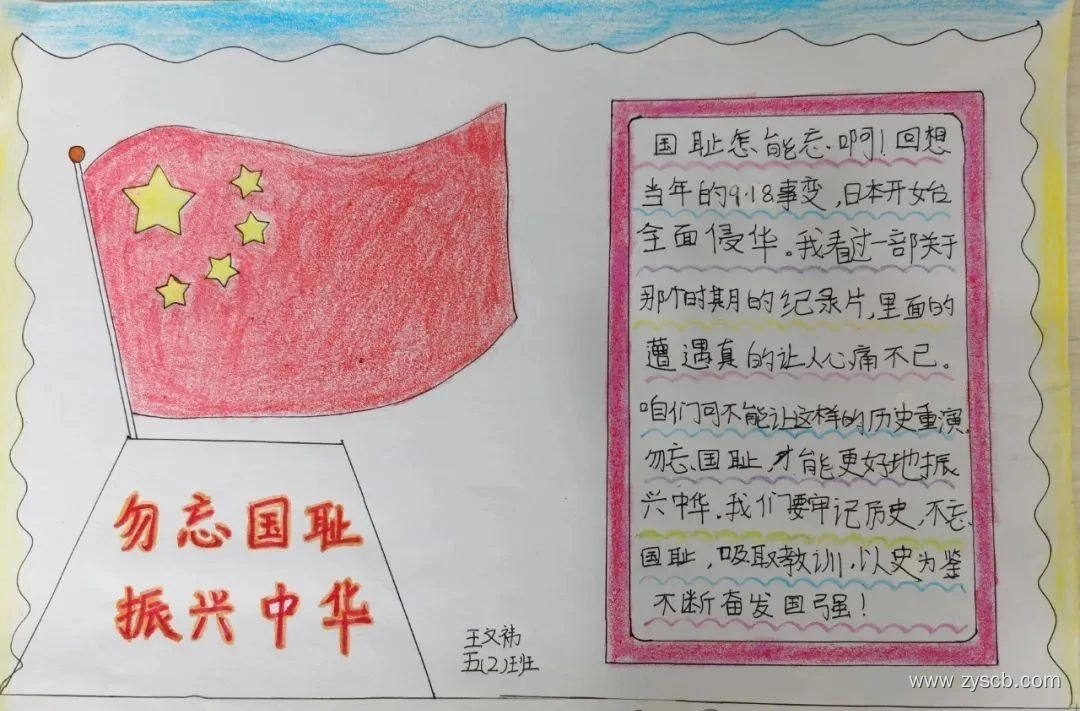 勿忘国耻
振兴中华
王文祎
五(2)班
国耻怎能忘啊!回想
当年的9·18事变,日本开始
全面侵华。我看过一部关于
那个时期的纪录片,里面的
遭遇真的让人心痛不已。
咱们可不能让这样的历史重演,
勿忘国耻,才能更好地振
兴中华。我们要牢记历史,不忘
国耻,吸取教训,以史为鉴
不断奋发国强!
www.zyscb.com